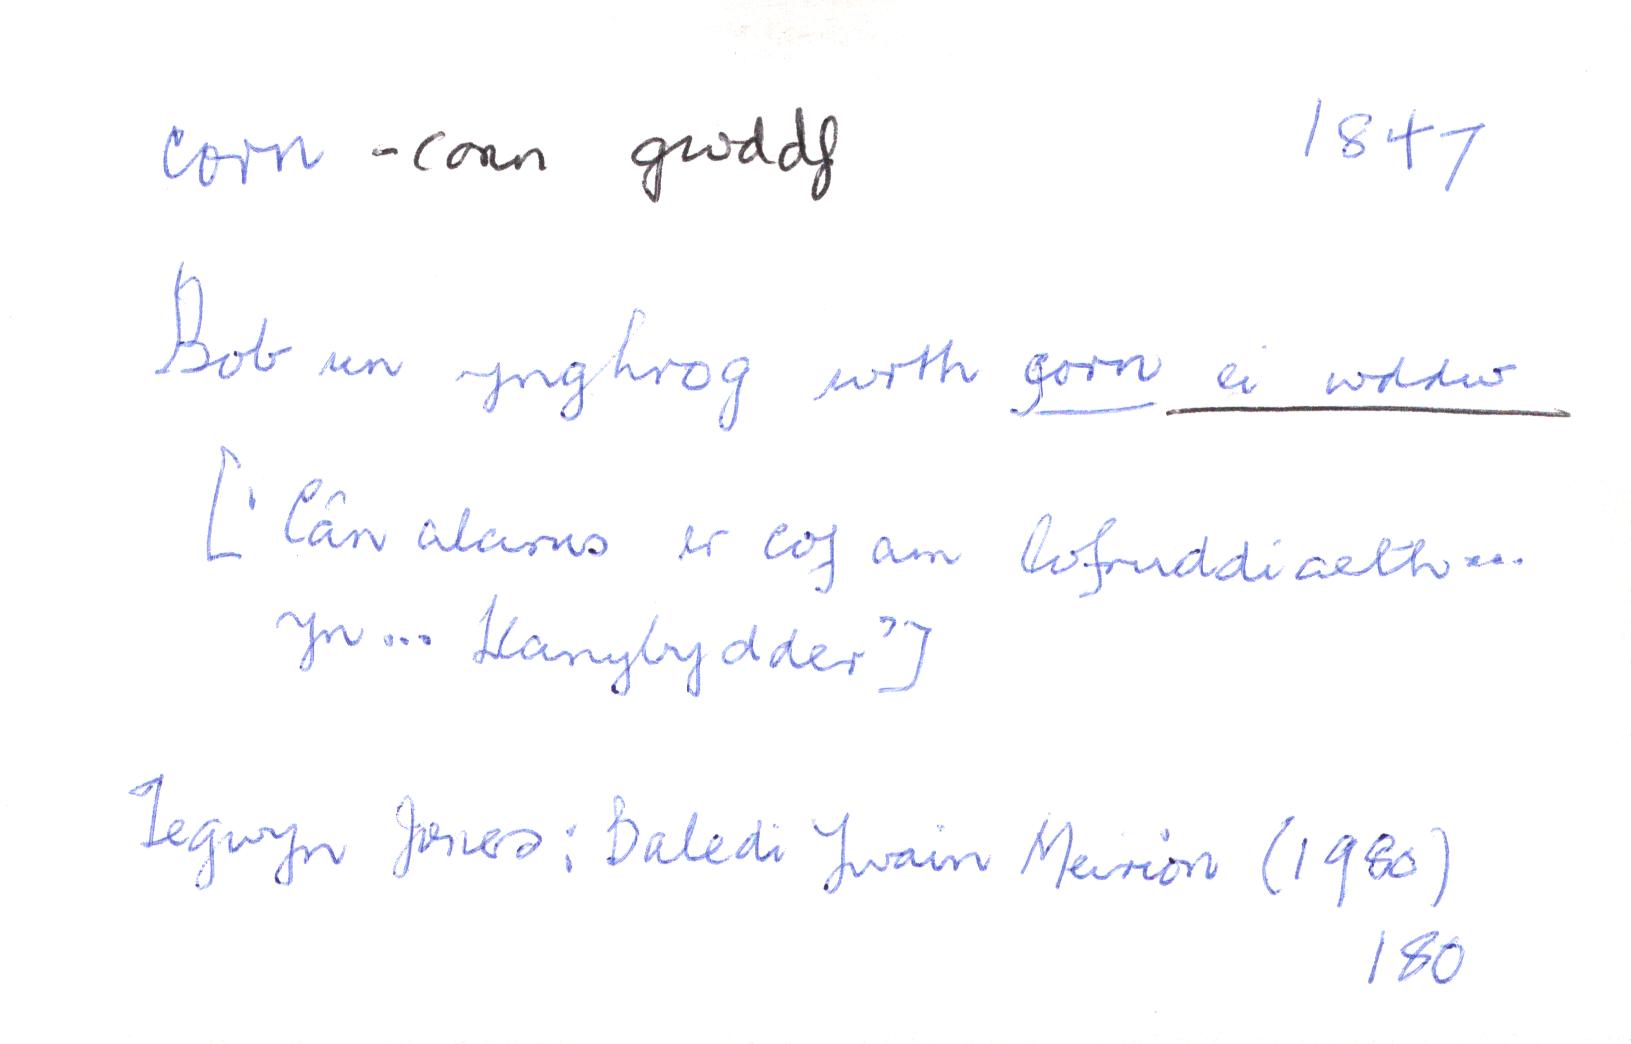 corn - corn gwddf 1847
Bob un ynghrog wrth gorn ei wddw
['Cân alarus er cof am lofruddiaeth...
yn... Llanybydder']
Tegwyn Jones: Baledi Ywain Meirion (1980)
180